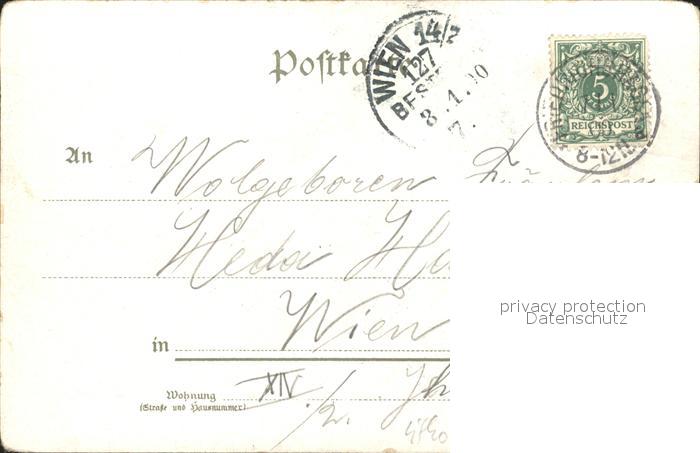 Postkarte
WIEN 14/2
127
BEST
8.1.00
7.
5
REICHSPOST
8-12N
An
Wolgeboren Fräulein
Heda Ha
in Wien
Wohnung XIV
(Straße und Hausnummer)
/2.
privacy protection
Datenschutz